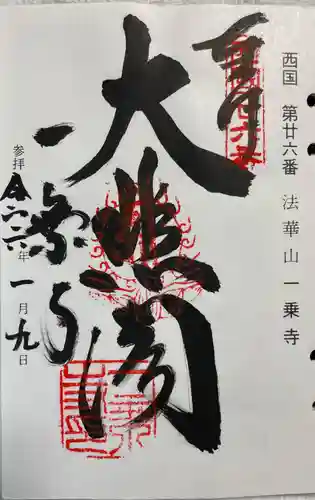 西国 第廿六番 法華山一乗寺
奉拝
大悲閣
一乗寺
参拝 令六年一月九日